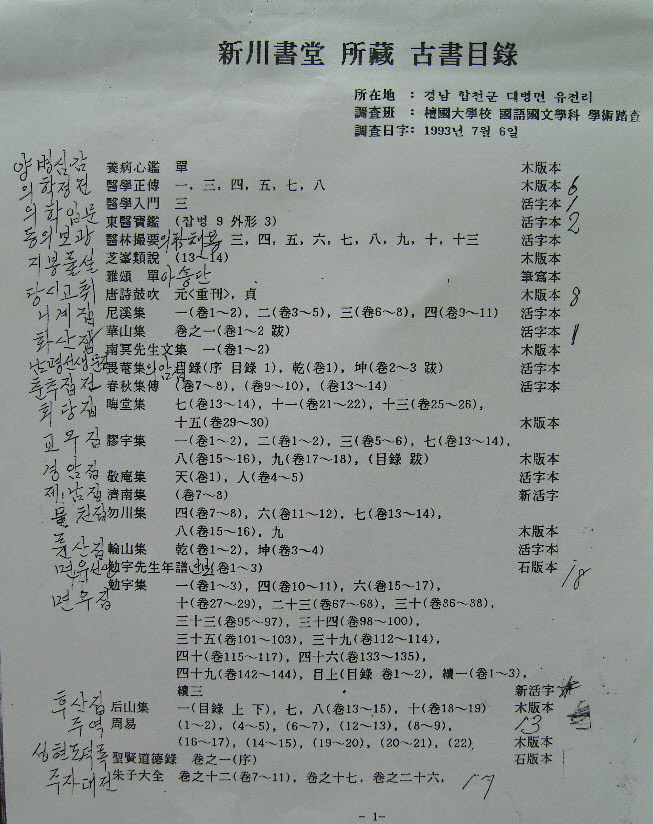 新川書堂 所藏 古書目錄
所在地 : 경남 합천군 대병면 유전리
調査班 : 檀國大學校 國語國文學科 學術踏査
調査日字: 1993년 7월 6일
양병심감 養病心鑑 單 木版本
의학정전 醫學正傳 一, 三, 四, 五, 七, 八 木版本 6
의학입문 醫學入門 三 活字本 1
동의보감 東醫寶鑑 (잡병 9 外形 3) 活字本 2
醫林撮要 三, 四, 五, 六, 七, 八, 九, 十, 十三 活字本
지봉유설 芝峯類說 (13~14) 木版本
雅頌 單 아송단 筆寫本
당시고취 唐詩鼓吹 元<重刊>, 貞 木版本 8
니계집 尼溪集 一(卷1~2), 二(卷3~5), 三(卷6~8), 四(卷9~11) 活字本
화산집 華山集 卷之一(卷1~2 跋) 活字本 1
南冥先生文集 一(卷1~2) 木版本
菴集 目錄(序 目錄 1), 乾(卷1), 坤(卷2~3 跋) 活字本
춘추집전 春秋集傳 (卷7~8), (卷9~10), (卷13~14) 活字本
회당집 晦堂集 七(卷13~14), 十一(卷21~22), 十三(卷25~26),
十五(卷29~30) 木版本
교우집 膠宇集 一(卷1~2), 二(卷1~2), 三(卷5~6), 七(卷13~14),
八(卷15~16), 九(卷17~18), (目錄 跋) 木版本
경암집 敬庵集 天(卷1), 人(卷4~5) 活字本
제남집 濟南集 (卷7~8) 新活字
물천집 勿川集 四(卷7~8), 六(卷11~12), 七(卷13~14),
八(卷15~16), 九 木版本
륜산집 輪山集 乾(卷1~2), 坤(卷3~4) 活字本
면우선생 勉宇先生年譜 (卷1~3) 石版本 18
면우집 勉宇集 一(卷1~3), 四(卷10~11), 六(卷15~17),
十(卷27~29), 二十三(卷67~68), 三十(卷86~88),
三十三(卷95~97), 三十四(卷98~100),
三十五(卷101~103), 三十九(卷112~114),
四十(卷115~117), 四十六(卷133~135),
四十九(卷142~144), 目上(目錄 卷1~2), 續一(卷1~3),
續三 新活字
후산집 后山集 一(目錄 上 下), 七, 八(卷13~15), 十(卷18~19) 木版本
주역 周易 (1~2), (4~5), (6~7), (12~13), (8~9), 13
(16~17), (14~15), (19~20), (20~21), (22) 木版本
성현도덕록 聖賢道德錄 卷之一(序) 石版本
주자대전 朱子大全 卷之十二(卷7~11), 卷之十七, 卷之二十六, 17
- 1-